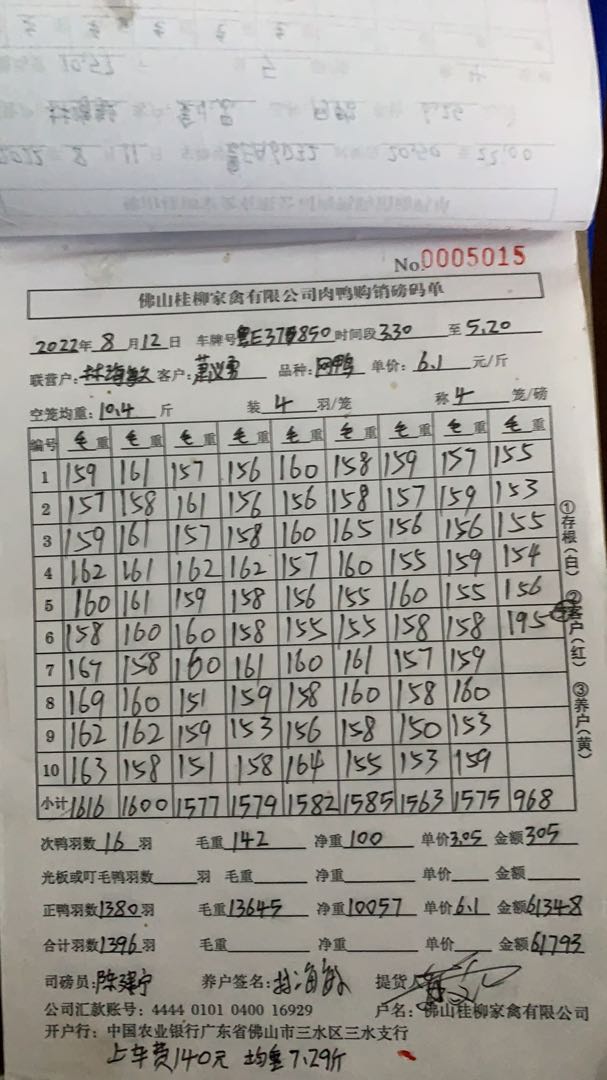 No. 0005015
佛山桂柳家禽有限公司肉鸭购销磅码单
2022年8月12日 车牌号 粤E37850 时间段 3.30 至 5.20
联营户: 林海敏 客户: 萧汉勇 品种: 网鸭 单价: 6.1 元/斤
空笼均重: 10.4 斤 装 4 羽/笼 称 4 笼/磅
编号 毛重 毛重 毛重 毛重 毛重 毛重 毛重 毛重 毛重
1 159 161 157 156 160 158 159 157 155
2 157 158 161 156 156 158 157 159 153
3 159 161 157 158 160 165 156 156 155
4 162 161 162 162 157 160 155 159 154
5 160 161 159 158 156 155 160 155 156
6 158 160 160 158 155 155 158 158 195
7 167 158 160 161 160 161 157 159
8 169 160 151 159 158 160 158 160
9 162 162 159 153 156 158 150 153
10 163 158 151 158 164 155 153 159
小计 1616 1600 1577 1579 1582 1585 1563 1575 968
①存根(白) ②客户(红) ③养户(黄)
次鸭羽数 16 羽 毛重 142 净重 100 单价 3.05 金额 305
光板或叮毛鸭羽数 羽 毛重 净重 单价 金额
正鸭羽数 1380 羽 毛重 13645 净重 10057 单价 6.1 金额 61348
合计羽数 1396 羽 毛重 净重 单价 金额 61793
司磅员: 陈建宁 养户签名: 林海敏 提货人
公司汇款账号: 4444 0101 0400 16929 户名: 佛山桂柳家禽有限公司
开户行: 中国农业银行广东省佛山市三水区三水支行
上车费140元 均重7.29斤